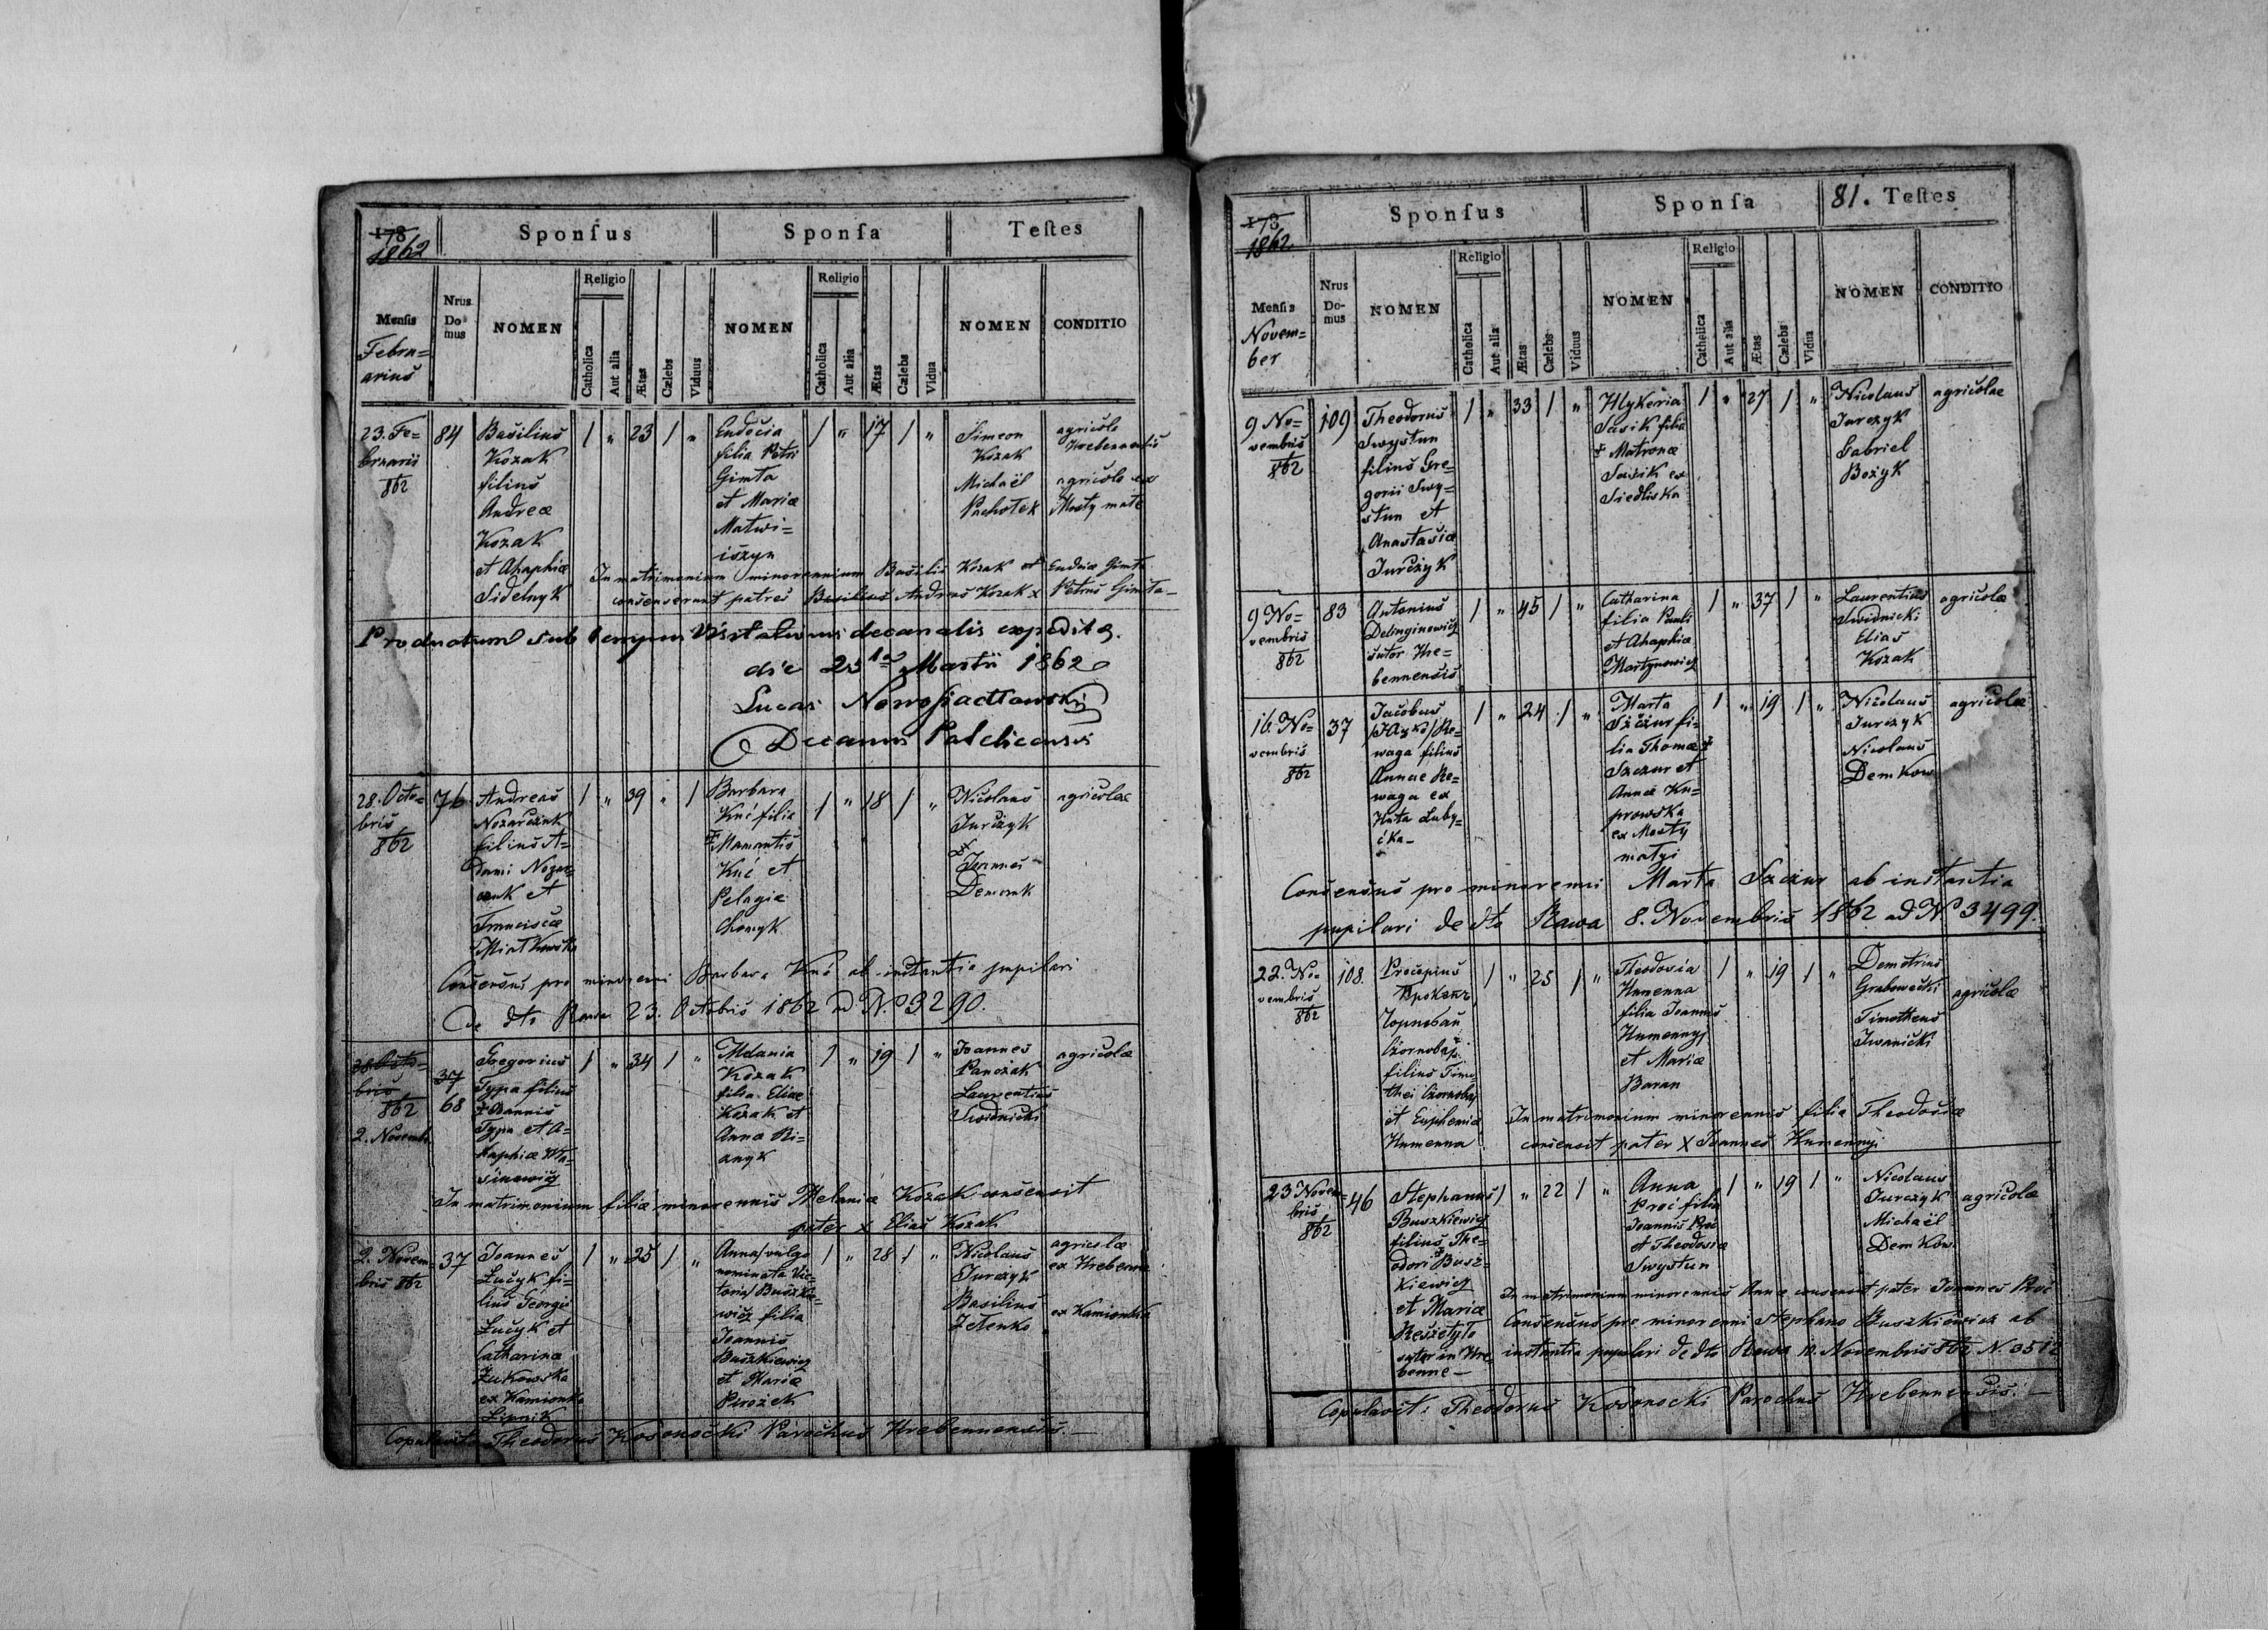 178
1862
Sponsus
Sponsa
Testes
Mensis
Nrus
Do
mus
NOMEN
Religio
Catholica
Aut alia
Ætas
Cælebs
Viduus
NOMEN
Religio
Catholica
Aut alia
Ætas
Cælebs
Vidua
NOMEN
CONDITIO
Febru=
arius
23. Fe=
bruarii
862
84
Basilius
Kozak
filius
Andreæ
Kozak
et Ahaphiæ
Sidelnyk
1 " 23 1 "
Eudocia
filia Petri
Gimta
et Mariæ
Matwi=
iszyn
1 " 17 1 "
Simeon
Kozak
Michaël
agricola
Hrebennensis
agricola ex
Mosty małe
In matrimonium minorennium Basilii Kozak et Eudociæ Gimta
consenserunt patres Basilius Andreas Kozak x Petrus Gimta
Produatum sub tempus Visitationis decanalis expeditæ
die 25ta Martii 1862
Lucas
Decanus
28. Octo=
bris
862
76
Andreas
Nozarczuk
filius A=
dami Nozar=
czuk et
Franciscæ
1 " 39 " 1
Barbara
Kuć filia
Mamantis
Kuć et
Pelagiæ
1 " 18 1 "
Nicolaus
Jurczyk
et
Joannes
Demczuk
agricolæ
Consensus pro minorenni Barbara Kuć ab instantia pupilari
de dto Rawa 23. Octobris 1862 ad No 3290.
28 Octo=
bris
862
2. Novemb.
37
68
Gregorius
Typa filius
Joannis
Typa et A=
haphiæ
1 " 34 1 "
Melania
Kozak
filia Eliæ
Kozak et
Annæ
1 " 19 1 "
Joannes
Panczak
Laurentius
Swidnicki
agricolæ
In matrimonium filiæ minorennis Melaniæ Kozak consensit
pater x Elias Kozak
2. Novem=
bris 862
37
Joannes
Łucyk fi=
lius Georgii
Łucyk et
Catharinæ
Żukowska
ex Kamionka
Lipnik
1 " 25 1 "
Anna/vulgo
nominata Vic=
toria/Buszkie=
wicz filia
Joannis
Buszkiewicz
et Mariæ
Pirożek
1 " 28 1 "
Nicolaus
Jurczyk
Basilius
Zelenko
agricolæ
ex Hrebenne
ex Kamionka
Copulavit: Theodorus Kosonocki Parochus Hrebennensis.
178
1862
Sponsus
Sponsa
81. Testes
Mensis
Nrus
Do-
mus
NOMEN
Religio
Catholica
Aut alia
Ætas
Cælebs
Viduus
NOMEN
Religio
Catholica
Aut alia
Ætas
Cælebs
Vidua
NOMEN
CONDITIO
Novem=
ber
9 No=
vembris
862
109
Theodorus
Swystun
filius Gre=
gorii Swy=
stun et
Anastasiæ
Jurczyk
1 " 33 1 "
Hlykeria
Sasik filia
Matronæ
Sasik ex
Siedliska
1 " 27 1 "
Nicolaus
Jurczyk
Gabriel
Bożyk
agricolae
9 No=
vembris
862
83
Antonius
sutor Hre=
bennensis
1 " 45 1 "
Catharina
filia Pauli
et Ahaphiæ
Martynowicz
1 " 37 1 "
Laurentius
Swidnicki
Elias
Kozak
agricolæ
16. No=
vembris
862
37
Jacobus
/Re=
waga filius
Annae Re=
waga ex
Huta Luby=
cka
1 " 24 1 "
Marta
Szczur fi=
lia Thomæ
Szczur et
Annæ Ku=
prowska
ex Mosty
małyi
1 " 19 1 "
Nicolaus
Jurczyk
Nicolaus
Demkow
agricolæ
Consensus pro minorenni Marta Szczur ab instantia
pupilari de dto Rawa 8. Novembris 1862 ad No 3499.
22. No=
vembris
862
108.
Procopius
Чорнобай
Czornobaj
filius Timo
thei Czornobaj
et Euphemiæ
Humenna
1 " 25 1 "
Theodosia
Humenna
filia Joannis
Humennyj
et Mariæ
Baran
1 " 19 1 "
Demetrius
Grabowecki
Timotheus
Iwanicki
agricolæ
In matrimonium minorennis filiæ Theodosiæ
consensit pater X Joannes Humennyj
23 Novem=
bris
862
46
Stephanus
Buszkiewicz
filius The=
odori Busz=
kiewicz
et Mariæ
Reszetyło
sutor in Hre
benne
1 " 22 1 "
Anna
Proć filia
Joannis Proć
et Theodosiæ
Swystun
1 " 19 1 "
Nicolaus
Jurczyk
Michaël
Demkow
agricolæ
In matrimonium minorennis Annæ consensit pater Joannes Proć
Consensus pro minorenni Stephano Buszkiewicz ab
instantia pupilari de dto Rawa 10. Novembris 862 N. 3512
Copulavit: Theodorus Kosonocki Parochus Hrebennensis.